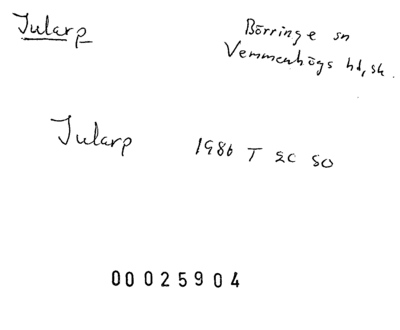 Jularp
Börringe sn
Vemmenhögs hd, sk.
Jularp 1986 T 2C SO
00025904